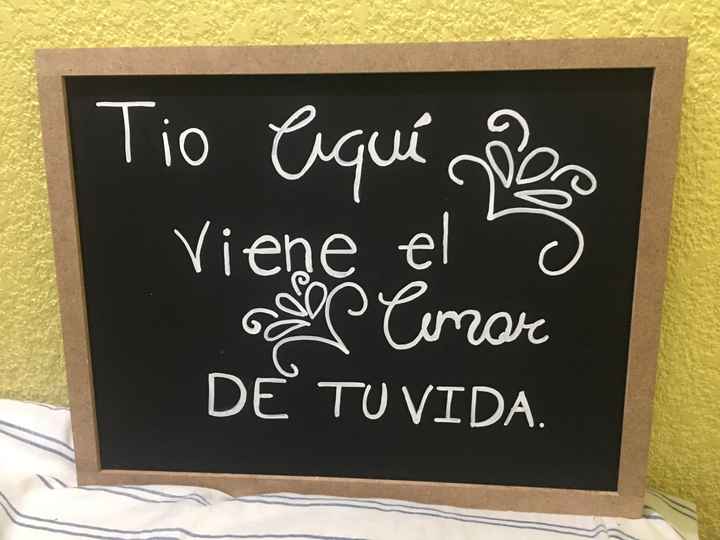 Tio Aquí
viene el
Amor
DE TU VIDA.